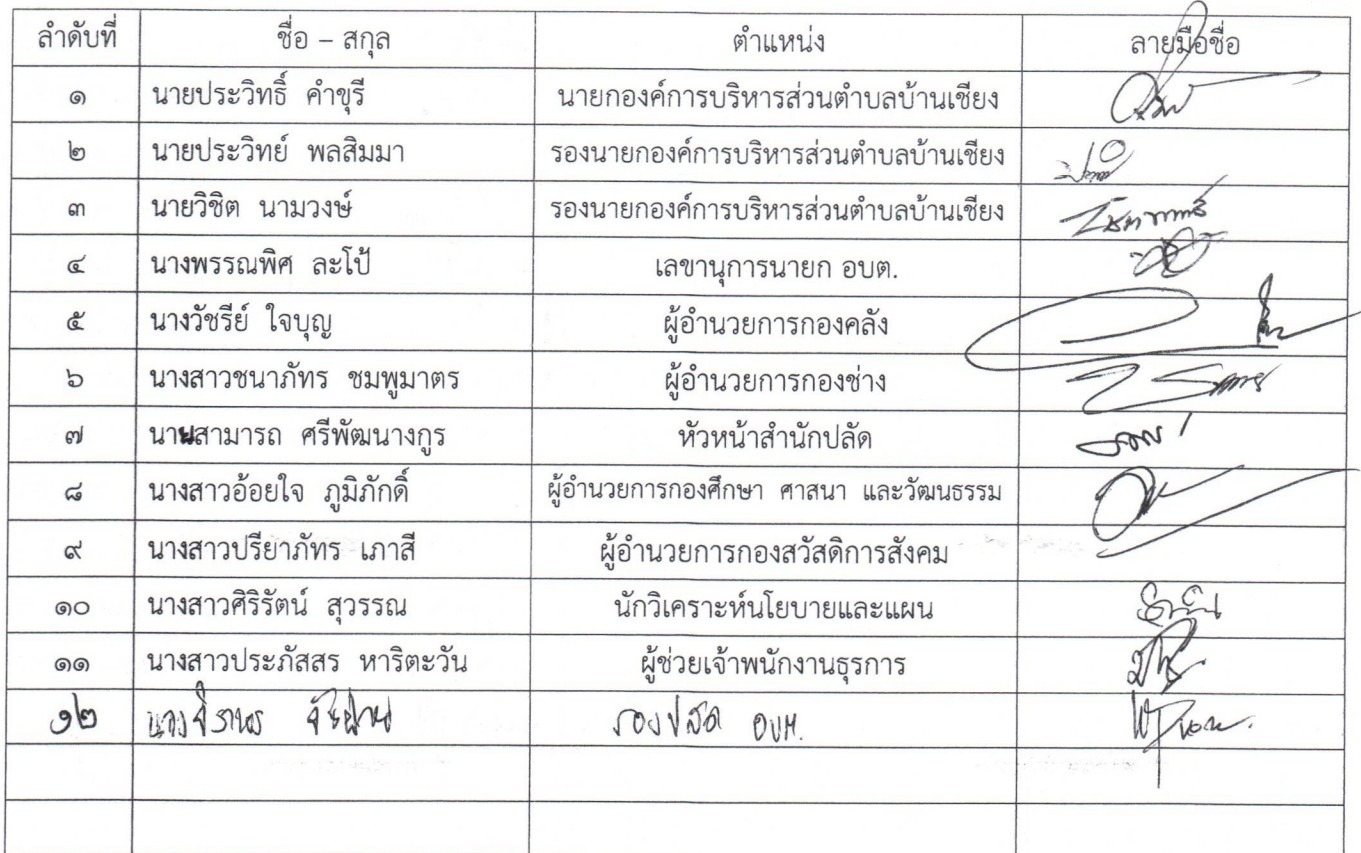 ลำดับที่ ชื่อ – สกุล ตำแหน่ง ลายมือชื่อ
๑ นายประวิทธิ์ คำขุรี นายกองค์การบริหารส่วนตำบลบ้านเชียง
๒ นายประวิทย์ พลสิมมา รองนายกองค์การบริหารส่วนตำบลบ้านเชียง
๓ นายวิชิต นามวงษ์ รองนายกองค์การบริหารส่วนตำบลบ้านเชียง
๔ นางพรรณพิศ ละโป้ เลขานุการนายก อบต.
๕ นางวัชรีย์ ใจบุญ ผู้อำนวยการกองคลัง
๖ นางสาวชนาภัทร ชมพูมาตร ผู้อำนวยการกองช่าง
๗ นายสามารถ ศรีพัฒนางกูร หัวหน้าสำนักปลัด
๘ นางสาวอ้อยใจ ภูมิภักดิ์ ผู้อำนวยการกองศึกษา ศาสนา และวัฒนธรรม
๙ นางสาวปรียาภัทร เภาสี ผู้อำนวยการกองสวัสดิการสังคม
๑๐ นางสาวศิริรัตน์ สุวรรณ นักวิเคราะห์นโยบายและแผน
๑๑ นางสาวประภัสสร หาริตะวัน ผู้ช่วยเจ้าพนักงานธุรการ
๑๒ รองปลัด อบต.